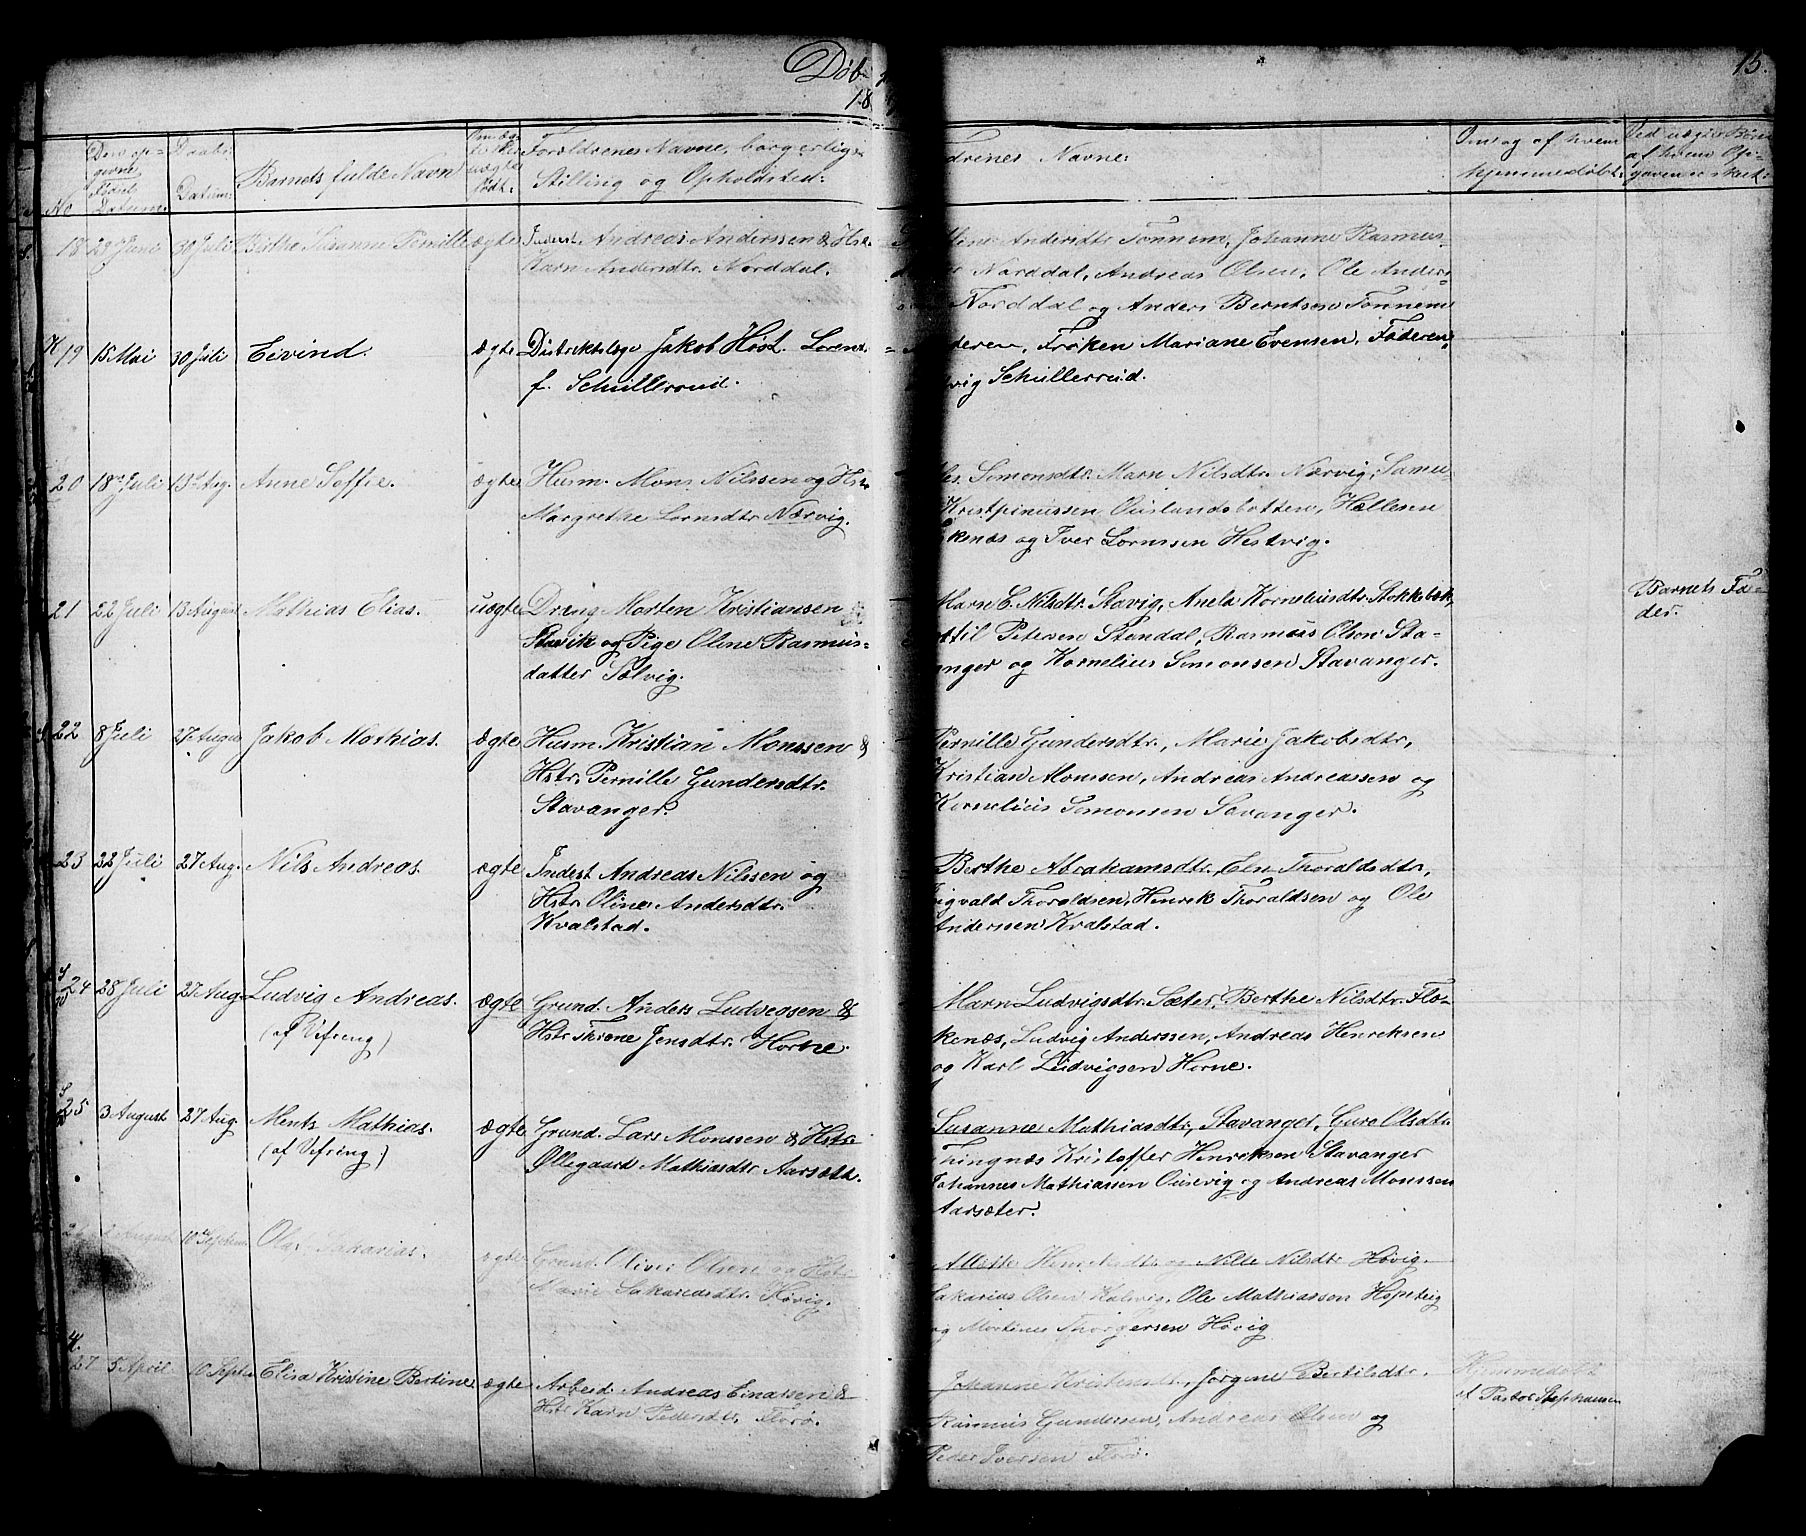 Døb
15.
18
No
Den op-
givne
Fødsel
Datum.
Daabs
Datum.
Barnets fulde Navn
Om æg-
te eller
uægte
født.
Forældrenes Navne, borgerlige
Stilling og Opholdsted.
drenes Navne.
Omsag af hvem
hjemmedøbt.
Ved uægte Børn
af hvem Opi-
gaven er skeet.
18 29 Juni 30 Juli Birthe Susanne Pernille ægte Inderst. Andreas Anderssen & Hst.
Karn Andersdtr. Norddal.
Andersdtr Tonnem, Johanne Rasmus-
Norddal, Andreas Olsen, Ole Anders-
Norddal og Anders Berntsen Tonnem
K 19 15 Mai 30 Juli Eivind. ægte Distriktslæge Jakob Høst. Lorent-
f. Schullerud.
deren, Frøken Mariane Evensen, Faderen,
vig Schullerud.
20 18de Juli 13de Aug. Anne Soffie. ægte Husm. Mons Nilssen og Hst.
Margrethe Lornsdtr Nærvig.
Simonsdtr. Marn Nilsdtr. Nærvig, Samu-
Kristpinussen Ouslandsbotten, Hellesen
kenæs og Iver Lornssen Hestvig.
21 22 Juli 13 August Mathias Elias. uægte Dreng Morten Kristiansen
Stavik og Pige Oline Rasmus-
datter Solvig.
Marn E. Nilsdtr. Stavig, Anela Kornelusdtr. Stokkebek,
til Petersen Standal, Rasmus Olsen Sta-
anger og Kornelius Simonsen Stavanger.
Barnets Fa-
der.
22 8 Juli 27 August Jakob Mathias. ægte Husm. Kristian Monssen &
Hstr. Pernille Gundersdtr.
Stavanger.
Pernille Gundersdtr., Marie Jakobsdtr,
Kristian Monsen, Andreas Andreassen og
Kornelius Simonsen Savanger.
23 22 Juli 27 Aug. Nils Andreas. ægte Inderst Andreas Nilssen og
Hstr. Oline Andersdtr.
Kvalstad.
Berthe Abrahamsdtr., Eln Thoraldsdtr,
igvald Thoraldsen, Henrik Thoraldsen og Ole
Anderssen Kvalstad.
24 28 Juli 27 Aug. Ludvig Andreas. ægte Grund. Anders Ludvigsen &
(af Vefring)
Hstr. Thrine Jensdtr. Horne.
Marn Ludvigsdtr. Sæter, Berthe Nilsdtr. Flo-
kenæs, Ludvig Anderssen, Andreas Henriksen
og Karl Ludvigsen Horne.
25 3 August 27 Aug. Ments Mathias. ægte Grund. Lars Monssen & Hstr.
(af Vefring)
Øllegaard Mathiasdtr Aarsæth.
Susanne Mathiasdtr., Stavanger, Guro Olsdtr.
Tringnæs Kristoffer Henriksen Stavanger
Johannes Mathiassen Ousevig og Andreas Monssen
Aarsæter.
2 August 10de Septem Olai Sakarias. ægte Grund. Oliver Olsen og Hstr.
Marie Sakariasdtr. Høvig.
Henriksdtr. og Nille Nilsdtr Høvig.
Sakarias Olsen Kalvig, Ole Mathiassen Hopstig
og Martines Thorgersen Høvig
4.
27 5 April 10 Septr. Elisa Kristine Bertine. ægte Arbeid. Andreas Enassen &
Hstr. Karn Pedersdtr. Florø.
Johanne Kristensdtr., Jørgine Bertilsdtr.
Rasmus Gundersen, Andreas Olsen og
Peder Iversen Florø.
Hjemmedøbt
af Pastor Stephansen